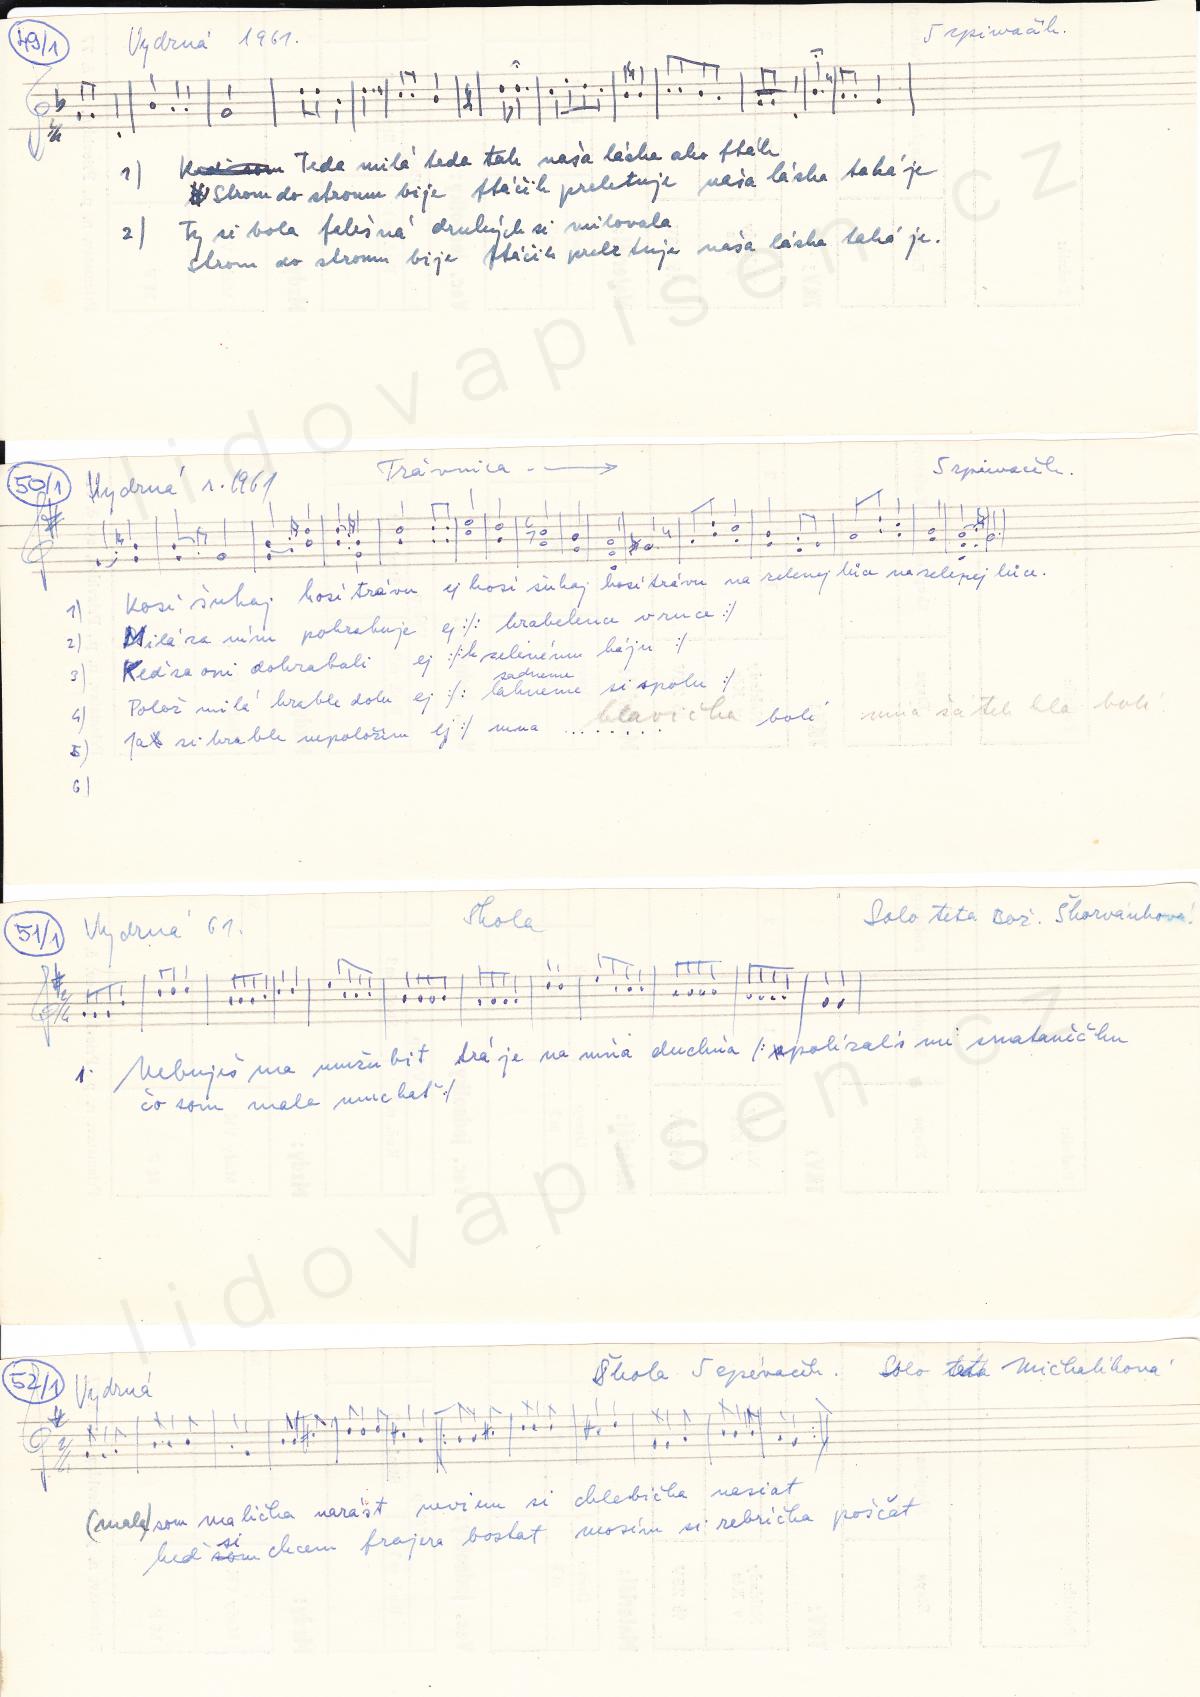 49/1 Vydrná 1961. 5 zpivaček.
1) Teda milá teda tak naša láska ako fták
Strom do stromu bije ftáčik preletuje naša láska taká je
2) Ty si bola falešná druhých si milovala
Strom do stromu bije ftáčik preletuje naša láska taká je.
50/1 Vydrná r. 1961 Trávnica 5 zpivaček.
1) Kosí šuhaj kosí trávu ej kosí šuhaj kosí trávu na zelenej lúce na zelenej lúce.
2) Milá za ním pohrabuje ej :/: hrabelence v ruce :/
3) Keď za oni dohrabali ej :/: k zelenému háju :/
sadneme
4) Polož milá hrable dolu ej :/: lahneme si spolu :/
5) Ja si hrable nepoložím ej :/ mna ........ hlavička bolí mna
6)
51/1 Vydrná 61. Škola Solo teta Bož. Škorvánková
1. Nebuješ ma mužu bit trá je na mňa duchňa /: polízalš mi smatančku
čo som mala muchať :/
52/1 Vydrná Škola 5 spěvaček. Solo teta Michalíková
(mala) som malička narást neviem si chlebička nasiat
si
keď som chcem frajera bostat mosím si rebrička poščat
lidovapisen.cz
lidovapisen.cz